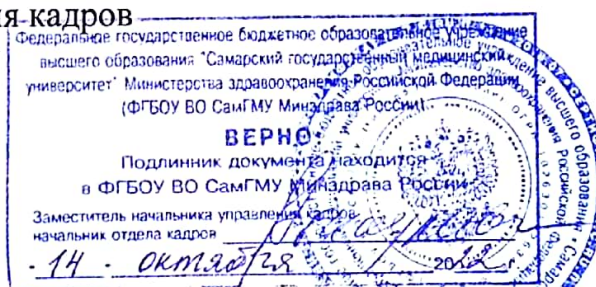 я кадров
Федеральное государственное бюджетное образовательное учреждение
высшего образования "Самарский государственный медицинский
университет" Министерства здравоохранения Российской Федерации
(ФГБОУ ВО СамГМУ Минздрава России)
ВЕРНО
Подлинник документа находится
в ФГБОУ ВО СамГМУ Минздрава России
Заместитель начальника управления кадров
начальник отдела кадров
14 октября 20 г.
высшего образования
Российской